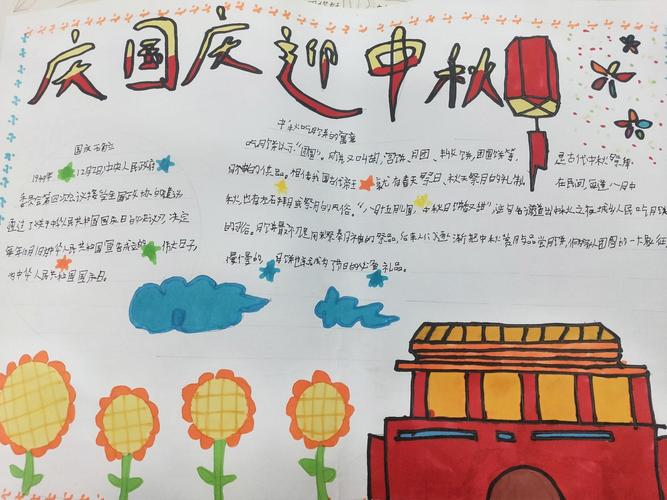 庆国庆迎中秋
国庆的来历
1949年12月2日中央人民政府
委员会第四次会议接受全国政协的建议
通过了关于中华人民共和国国庆日的决议,决定
每年10月1日即中华人民共和国宣告成立的伟大日子,
为中华人民共和国国庆日。
中秋吃月饼的寓意
吃月饼以示“团圆”。月饼又叫胡饼、宫饼、月团、丰收饼、团圆饼等,是古代中秋祭拜
月神的供品。相传我国古代帝王就有春天祭日、秋天祭月的礼制,在民间,每逢八月中
秋,也有左右拜月或祭月的风俗。“八月十五月儿圆,中秋月饼香又甜”,这句名谚道出中秋之夜城乡人民吃月饼
的习俗。月饼最初是用来祭奉月神的祭品,后来人们逐渐把中秋赏月与品尝月饼,作为家人团圆的一大象征
慢慢的,月饼也就成为了节日的必备礼品。